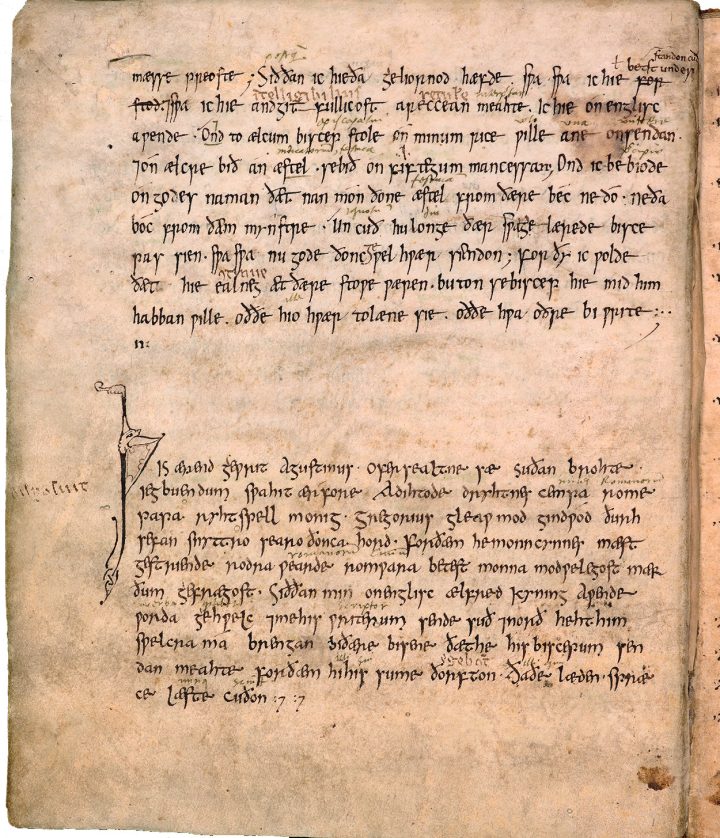 mæsse preoste ; Siððan ic hieða geliornod hæfde . sƿæ sƿæ ic hie for
stod . 7 sƿæ ic hie andgit fullicost areccean meahte . ic hie onenglisc
aƿende . Ond to ælcum biscep stole on minum rice ƿille ane onsendan .
7 on ælcre bið an æstel . se bið on fiftegum mancessan ; Ond ic bebiode
on godes naman ðæt nan mon ðone æstel from ðære bec nedo . neða
boc from ðæm mynstre . Un cuð hulonge ðær sƿæge lærede bisce
pas sien . sƿæ sƿæ nu gode ðonc ƿel hƿær siendon ; for ðy ic ƿolde
ðæt hie ealneg æt ðære stoƿe ƿæren . buton sebiscep hie mid him
habban ƿille . oððe hio hƿær tolæne sie . oððe hƿa oðre bi ƿrite :
Þis ærend geƿrit agustinus . ofersealtne sæ suðan brohte .
iegbuendum sƿahit ærfore . Adihtode dryhtnes cempa rome
papa . ryhtspell monig . Gregorius gleaƿ mod gindƿod ðurh
sefan snyttro searoðonca hord . Forðæm hemonncynnes mæst
gestriende rodra ƿearde romƿara betest monna modƿelegost mær
ðum gefrægost . Siððan min onenglisc ælfred kyning aƿende
ƿorda gehƿelc 7mehis ƿriterum sende suð 7norð hehthim
sƿelcra ma brengan biðære bisene ðæthe hisbiscepum sen
dan meahte forðæm hihis sume ðorfton . ðaðe læden spræ
ce læste cuðon :7 :7